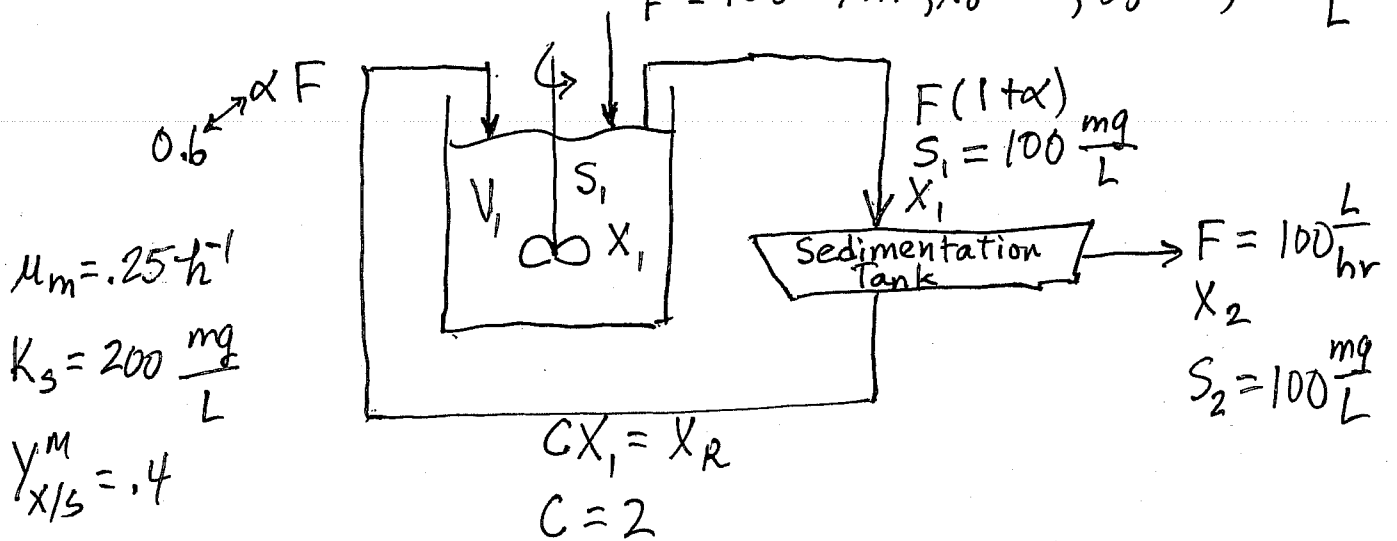 αF
0.6
V₁
S₁
X₁
F(1+α)
S₁ = 100 mg/L
X₁
Sedimentation
Tank
F = 100 L/hr
X₂
S₂ = 100 mg/L
μm = .25 h⁻¹
Ks = 200 mg/L
Y^M X/S = .4
CX₁ = X_R
C = 2